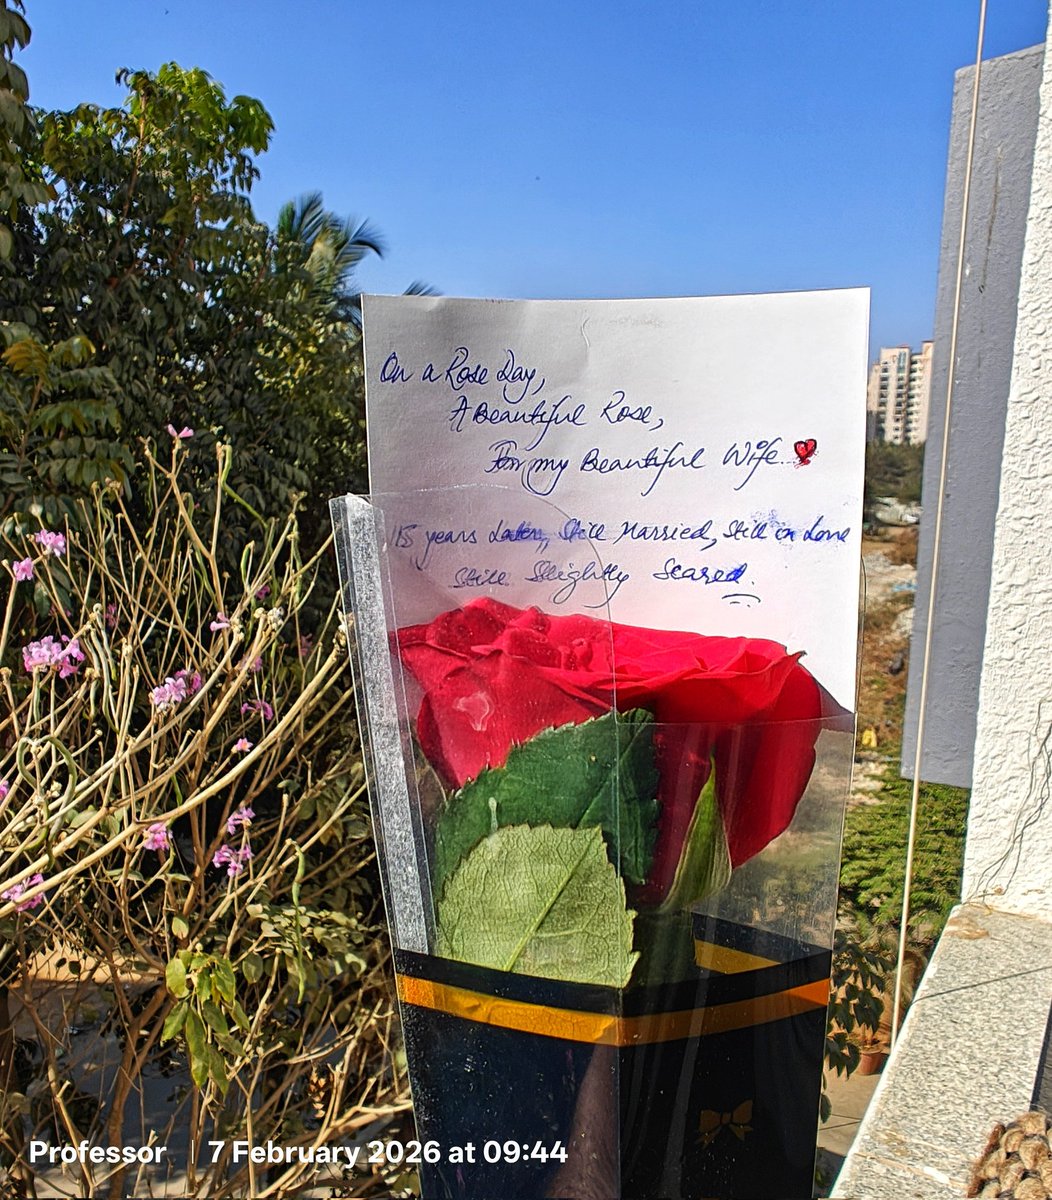 On a Rose Day,
A Beautiful Rose,
For my Beautiful Wife..
15 years Later, Still Married, Still in Love
Still Slightly Scared.
Professor | 7 February 2026 at 09:44